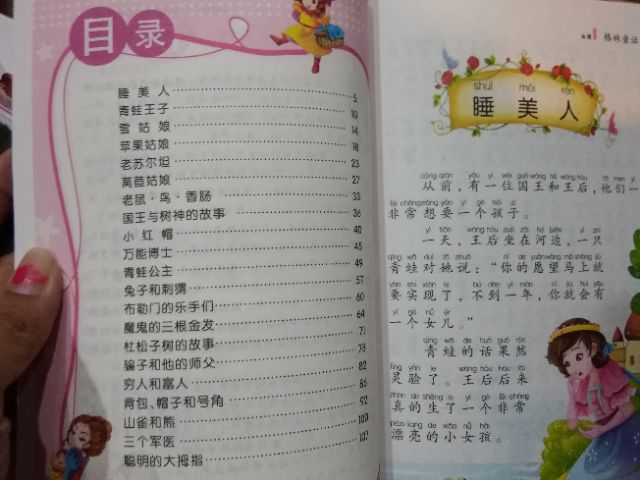 目录
睡美人 5
青蛙王子 10
雪姑娘 14
苹果姑娘 18
老苏尔坦 23
莴苣姑娘 27
老鼠·鸟·香肠 33
国王与树神的故事 36
小红帽 40
万能博士 45
青蛙公主 49
兔子和刺猬 57
布勒门的乐手们 60
魔鬼的三根金发 64
杜松子树的故事 71
骗子和他的师父 78
穷人和富人 82
背包、帽子和号角 86
山雀和熊 92
三个军医 100
聪明的大拇指 107
格林童话
shuì měi rén
睡美人
cóng qián yǒu yí wèi guó wáng hé wáng hòu tā men yì
从前,有一位国王和王后,他们一
fēi cháng xiǎng yào yí gè hái zi
非常想要一个孩子。
yì tiān wáng hòu zuò zài hé biān yì zhī
一天,王后坐在河边,一只
qīng wā duì tā shuō nǐ de yuàn wàng mǎ shàng jiù
青蛙对她说:“你的愿望马上就
yào shí xiàn le bú dào yì nián nǐ jiù huì yǒu
要实现了,不到一年,你就会有
yí gè nǚ ér
一个女儿。”
qīng wā de huà guǒ rán
青蛙的话果然
líng yàn le wáng hòu hòu lái
灵验了。王后后来
zhēn de shēng le yí gè fēi cháng
真的生了一个非常
piào liang de xiǎo nǚ hái
漂亮的小女孩。